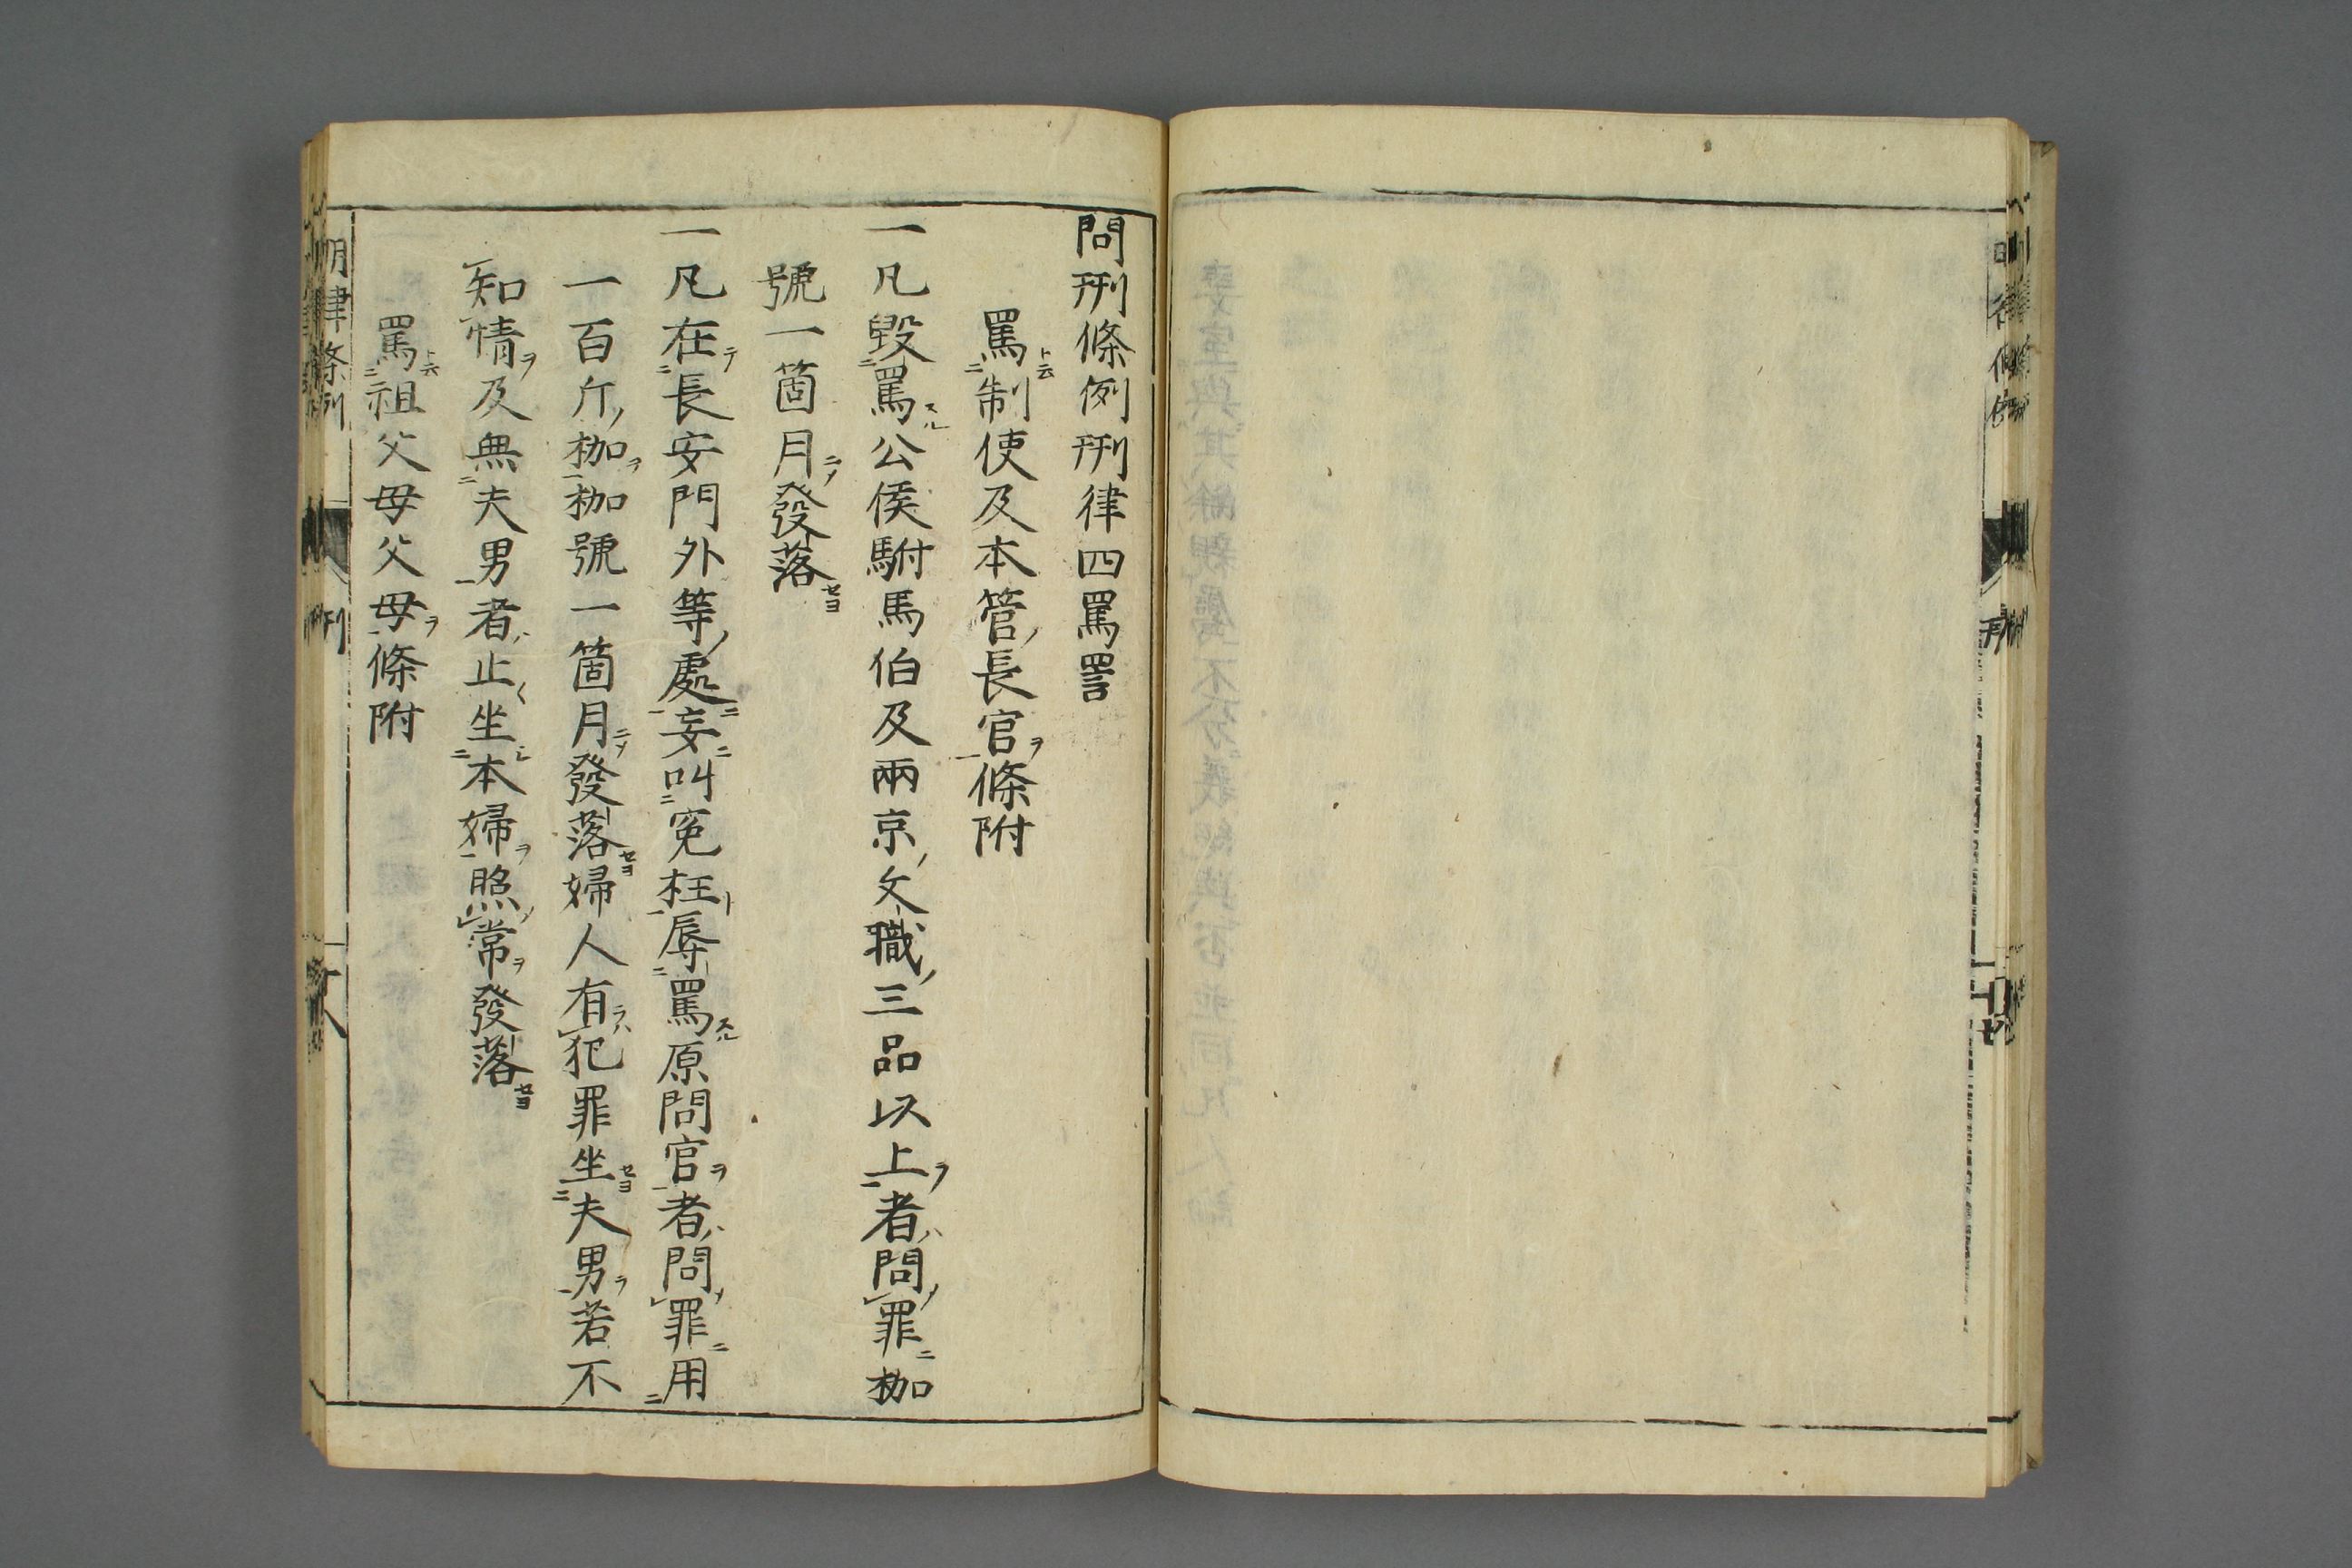 問刑條例刑律四罵詈
罵制使及本管長官條附
一凡毀罵公侯駙馬伯及兩京文職三品以上者問罪枷
號一箇月發落
一凡在長安門外等處妄叫冤枉辱罵原問官者問罪用
一百斤枷枷號一箇月發落婦人有犯罪坐夫男若不
知情及無夫男者止坐本婦照常發落
罵祖父母父母條附
明律條例 刑